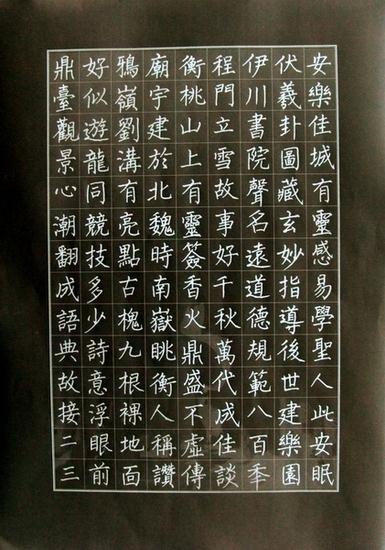 安樂佳城有靈感易學聖人此安眠
伏羲卦圖藏玄妙指導後世建樂園
伊川書院聲名遠道德規範八百年
程門立雪故事好千秋萬代成佳談
衡桃山上有靈簽香火鼎盛不虛傳
廟宇建於北魏時南嶽眺衡人稱讚
鴉嶺劉溝有亮點古槐九根裸地面
好似遊龍同競技多少詩意浮眼前
鼎臺觀景心潮翻成語典故接二三